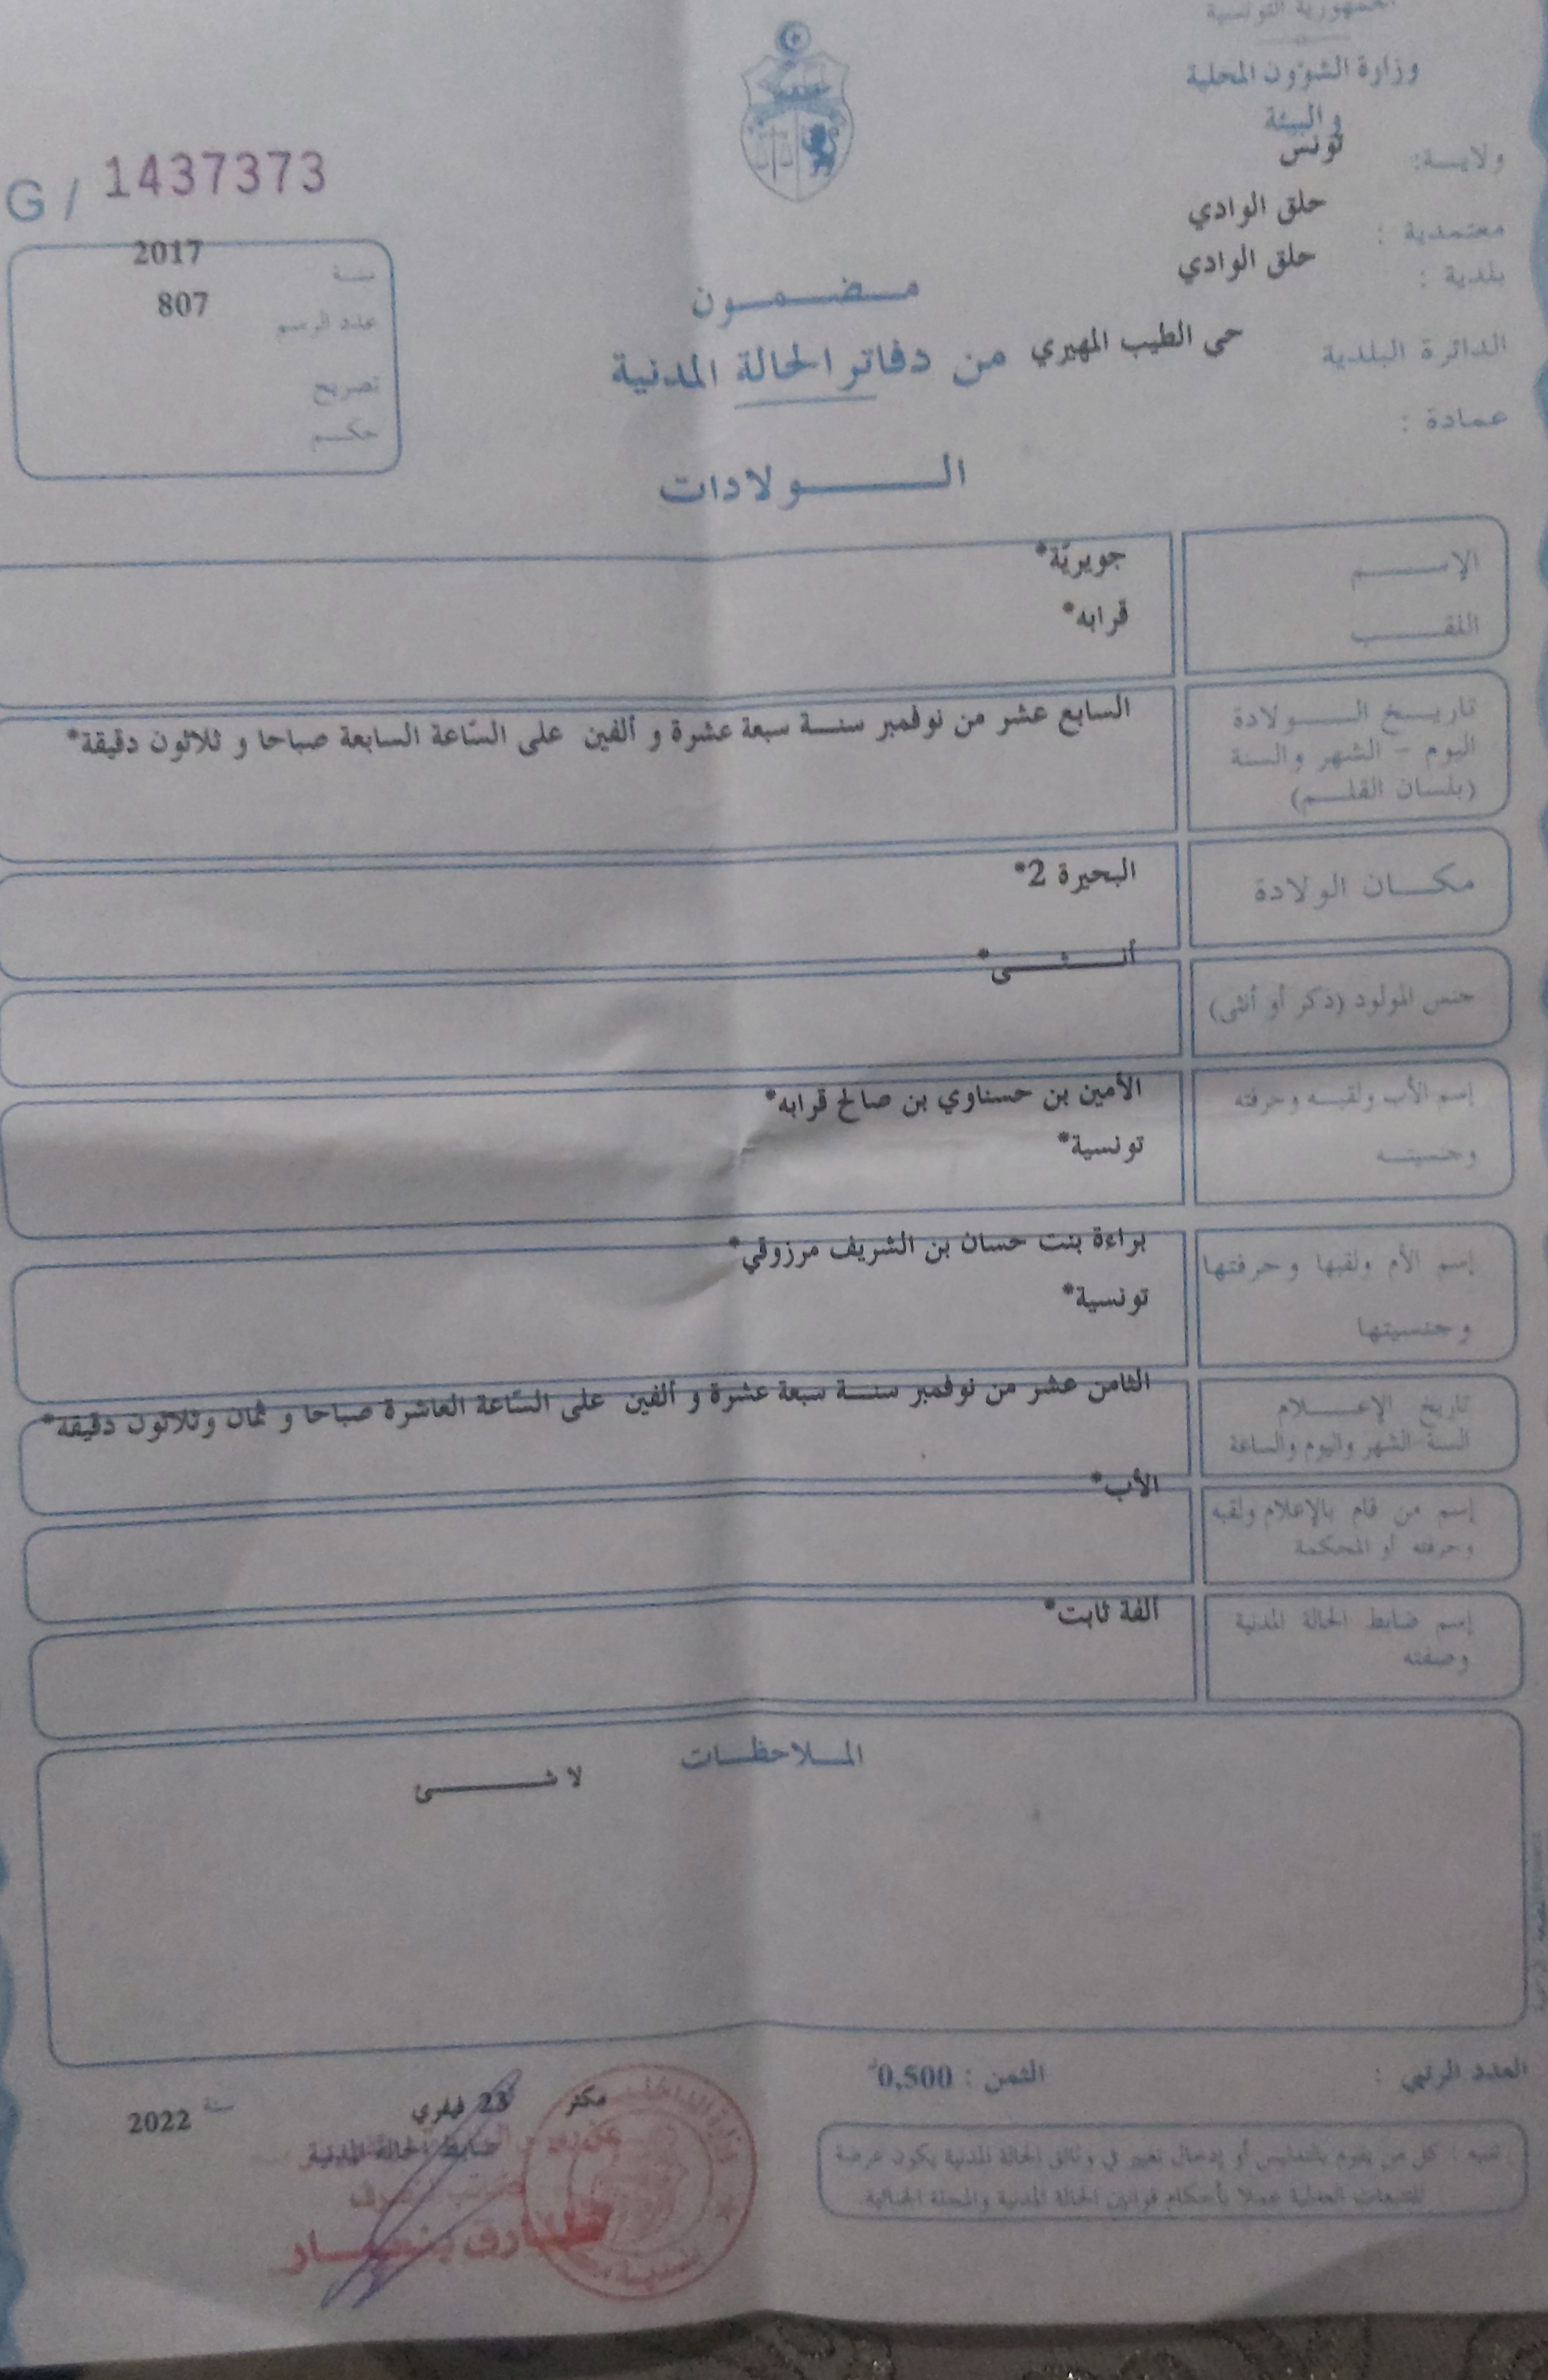 الجمهورية التونسية
وزارة الشؤون المحلية
والبيئة
ولايـــة: تونس
معتمدية : حلق الوادي
بلدية : حلق الوادي
الدائرة البلدية حى الطيب المهيري
عمادة :
G / 1437373
سنــة 2017
عدد الرسم 807
تصريح
حكــم
مـــضـــمـــون
من دفاتر الحالة المدنية
الـــــولادات
الإســـــم جويريّة*
اللقـــــب قرابه*
تاريـــخ الـــــولادة
اليوم - الشهر والسنة
(بلســان القلــم)
السابع عشر من نوفمبر سنــة سبعة عشرة و ألفين على السّاعة السابعة صباحا و ثلاثون دقيقة*
مكـــان الولادة البحيرة 2*
جنس المولود (ذكر أو أنثى) أنـــثـــى*
إسم الأب ولقبــه وحرفته
وجنسيتــه
الأمين بن حسناوي بن صالح قرابه*
تونسية*
إسم الأم ولقبها وحرفتها
وجنسيتها
براءة بنت حسان بن الشريف مرزوقي*
تونسية*
تاريخ الإعـــــلام
السنة الشهر واليوم والساعة
الثامن عشر من نوفمبر سنــة سبعة عشرة و ألفين على السّاعة العاشرة صباحا و ثمان وثلاثون دقيقة*
إسم من قام بالإعلام ولقبه
وحرفته أو المحكمة
الأب*
إسم ضابط الحالة المدنية
وصفته
الفة ثابت*
المــلاحظــات
لا شـــــىء
العدد الرتبي :
الثمن : 0,500د
تنبيه : كل من يقوم بالتدليس أو إدخال تغيير في وثائق الحالة المدنية يكون عرضة
للتتبعات العدلية عملا بأحكام قوانين الحالة المدنية والمجلة الجنائية.
مكثر 23 فيفري سنــة 2022
ضابط الحالة المدنية